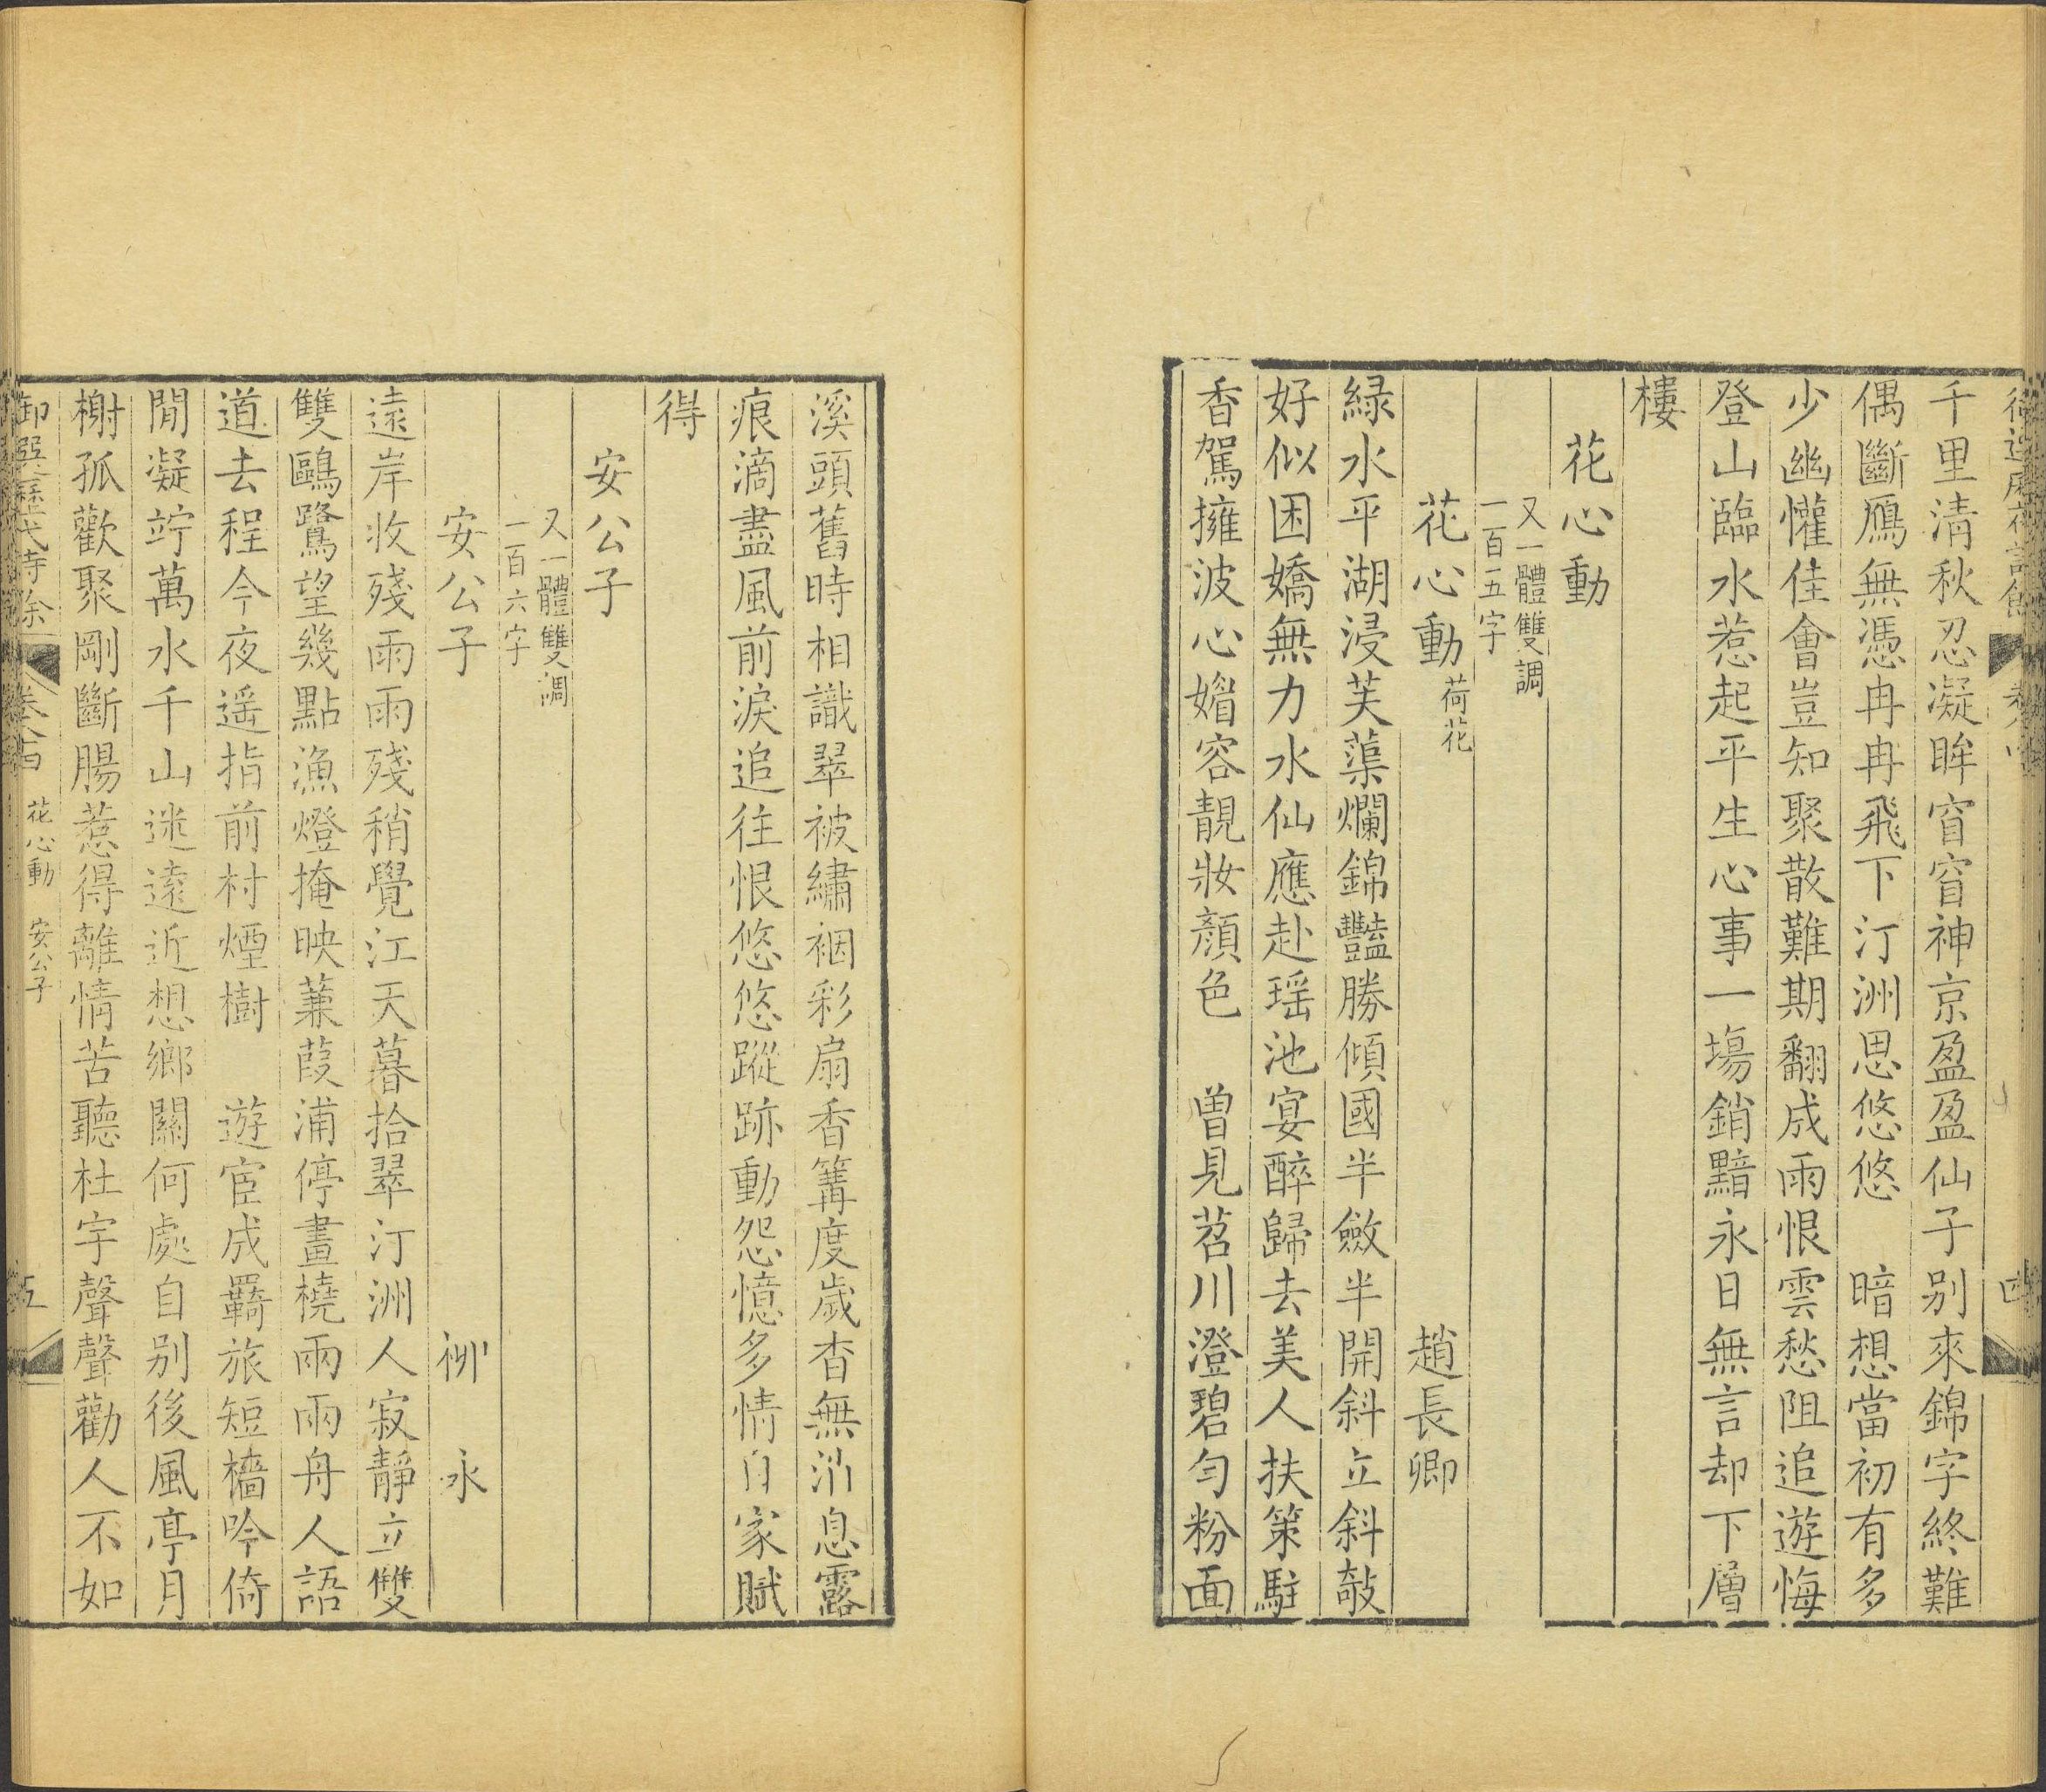 千里清秋忍凝眸窅窅神京盈盈仙子别來錦字終難
偶斷鴈無憑冉冉飛下汀洲思悠悠　暗想當初有多
少幽懽佳會豈知聚散難期翻成雨恨雲愁阻追遊悔
登山臨水惹起平生心事一塲銷黯永日無言却下層
樓
花心動
又一體雙調
一百五字
花心動 荷花　趙長卿
緑水平湖浸芙蕖爛錦豔勝傾國半斂半開斜立斜敧
好似困嬌無力水仙應赴瑶池宴醉歸去美人扶策駐
香駕擁波心媚容靚妝顔色　曽見苕川澄碧匀粉面
溪頭舊時相識翠被繡裀彩扇香篝度歲杳無消息露
痕滴盡風前淚追往恨悠悠蹤跡動怨憶多情自家賦
得
安公子
又一體雙調
一百六字
安公子　栁永
逺岸收殘雨雨殘稍覺江天暮拾翠汀洲人寂靜立雙
雙鷗鷺望幾點漁燈掩映蒹葭浦停畫橈兩兩舟人語
道去程今夜遥指前村煙樹　遊宦成羈旅短檣吟倚
閒凝竚萬水千山迷逺近想鄉關何處自别後風亭月
榭孤歡聚剛斷腸惹得離情苦聽杜宇聲聲勸人不如
卷八十四　花心動　安公子
五